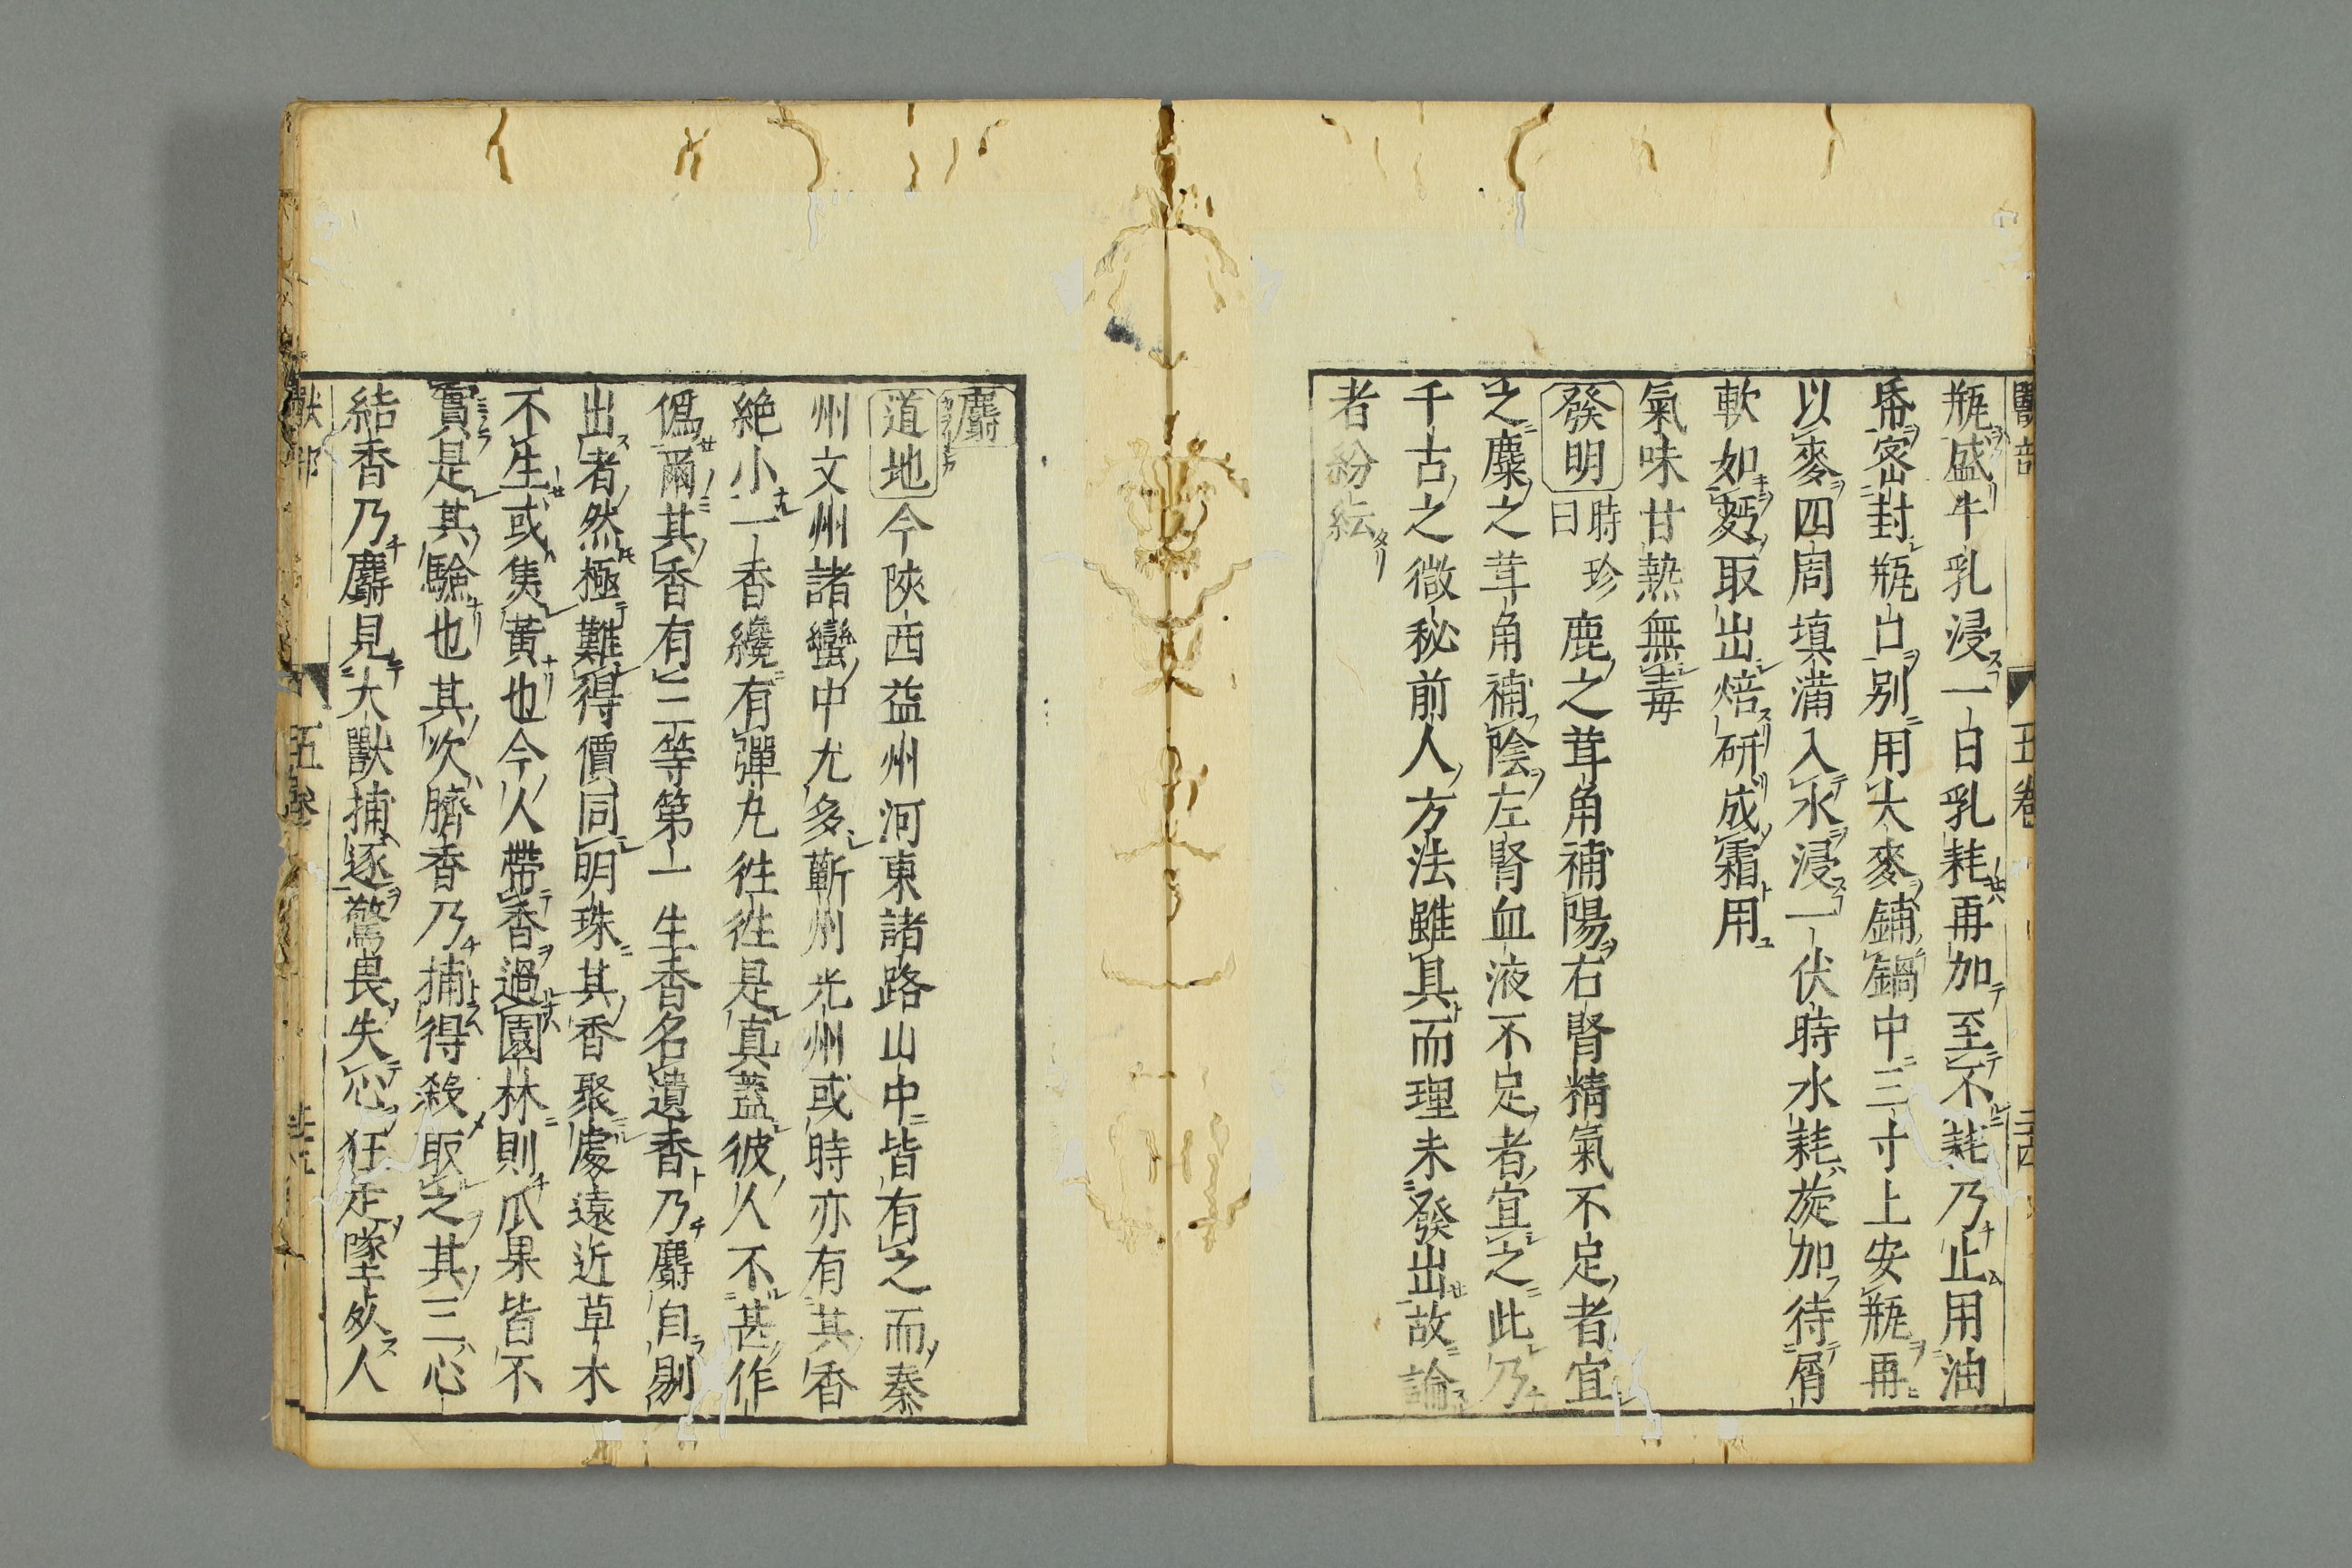 獸部 五卷
瓶盛牛乳浸一日乳耗再加至不耗乃止用油
帋密封瓶口別用大麥鋪鍋中三寸上安瓶再
以麥四周填滿入水浸一伏時水耗旋加待屑
軟如麪取出焙研成霜用
氣味甘熱無毒
發明時珍曰鹿之茸角補陽右腎精氣不足者宜
之麋之茸角補陰左腎血液不足者宜之此乃
千古之微秘前人方法雖具而理未發出故論
者紛紜
麝
道地今陝西益州河東諸路山中皆有之而秦
州文州諸蠻中尤多蘄州光州或時亦有其香
絕小一香纔有彈丸徃徃是真蓋彼人不甚作
僞爾其香有三等第一生香名遺香乃麝自剔
出者然極難得價同明珠其香聚處遠近草木
不生或焦黃也今人帶香過園林則瓜果皆不
實是其驗也其次臍香乃捕得殺取之其三心
結香乃麝見大獸捕逐驚畏失心狂走墜死人
獸部 五卷